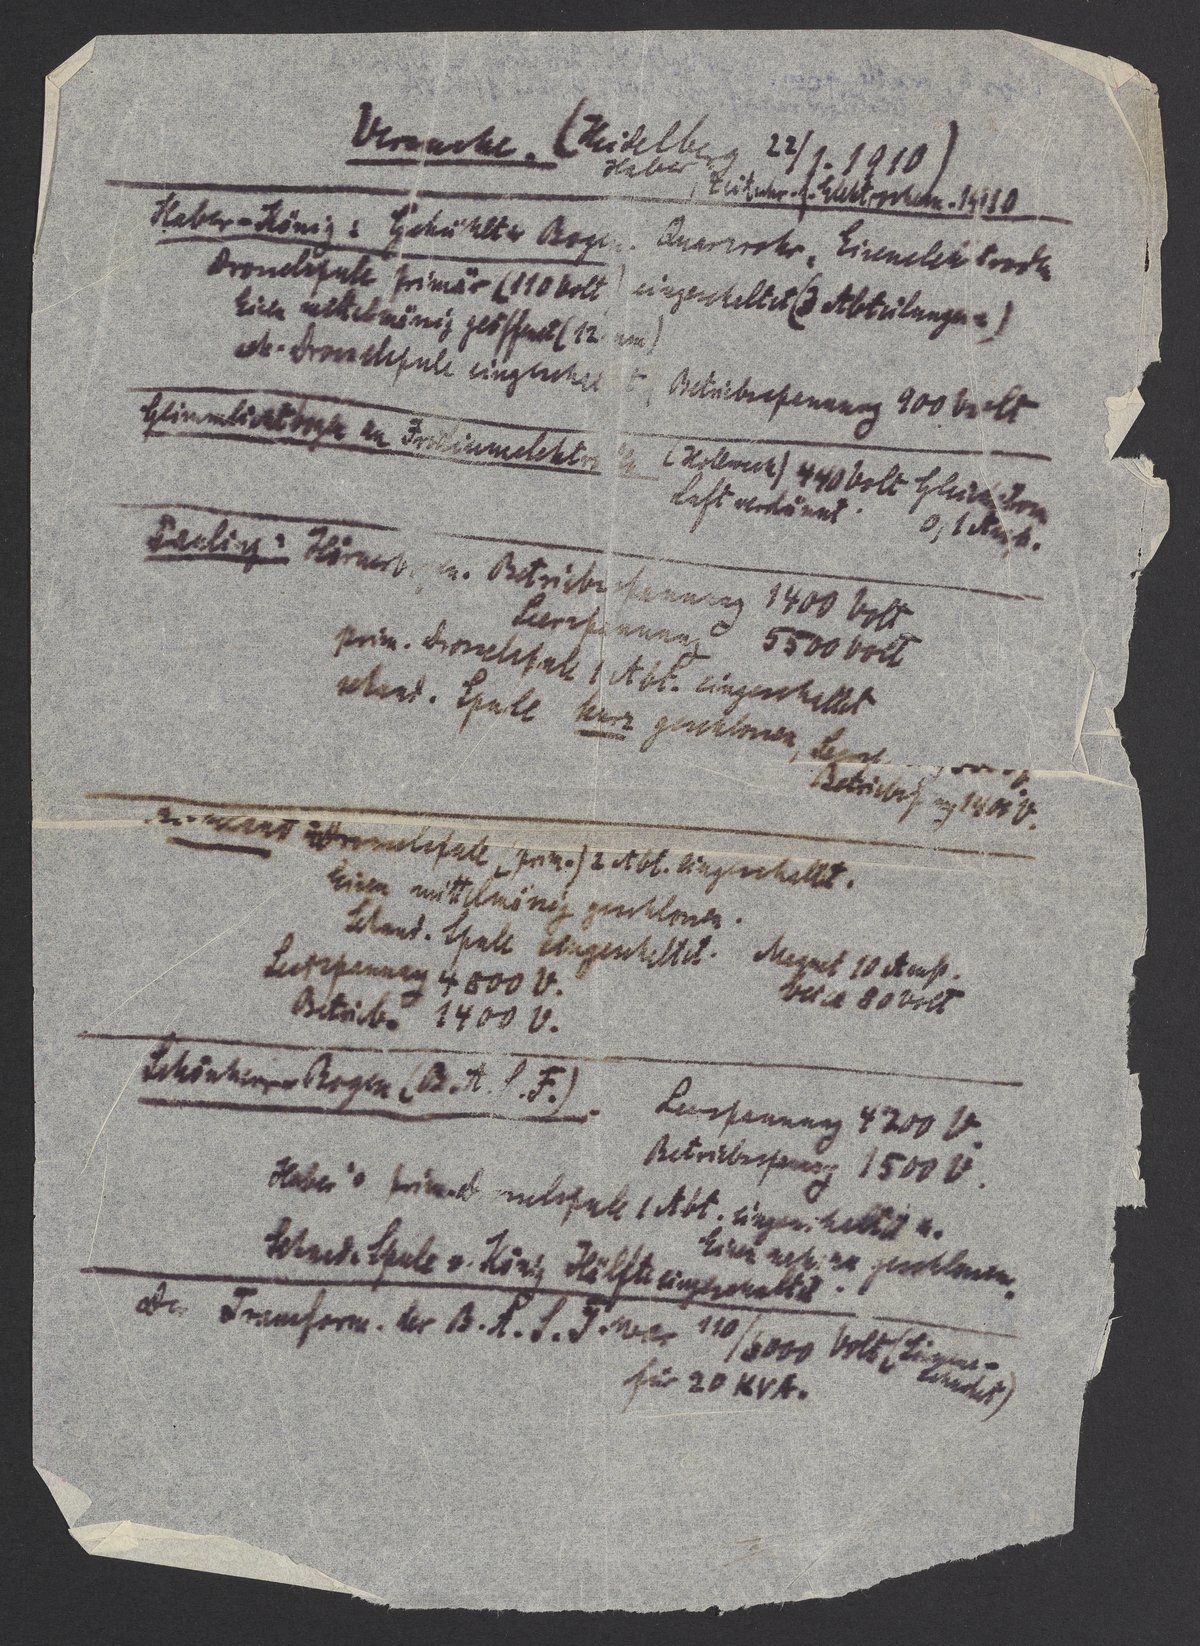 Versuche. (Heidelberg 22/1. 1910)
Haber, Zeitschr. f. Elektrochem. 1910
Haber-König: Gekühlter Bogen. Quarzrohr, Eisenelektroden
Drosselspule primär (110 Volt) eingeschaltet (3 Abteilungen)
Eisen mittelmässig geöffnet (12 mm)
Drosselspule eingeschaltet, Betriebsspannung 900 Volt
Glimmlichtbogen an (Holweck) 440 Volt Gleichstrom
Luft verdünnt. 0,1 Amp.
Pauling: Hörnerbogen. Betriebsspannung 1400 Volt
Leerspannung 5500 Volt
prim. Drosselspule 1 Abt. eingeschaltet
sekund. Spule kurz geschlossen,
Betriebsspg 1400 V.
Drosselspule (prim.) 2 Abt. eingeschaltet.
Eisen mittelmässig geschlossen.
Sekund. Spule eingeschaltet. Magnet 10 Amp.
Leerspannung 4500 V. bei ca 80 Volt
Betrieb. 1400 V.
Schönherr-Bogen (B.A.S.F.)
Leerspannung 4200 V.
Betriebsspannng 1500 V.
Haber's prim. Drosselspule 1 Abt. eingeschaltet u.
Eisen geschlossen.
Sekund. Spule v. König Hälfte eingeschaltet.
Der Transform. der B.A.S.F. war 110/5000 Volt (Siemens-
Schuckert)
für 20 KVA.